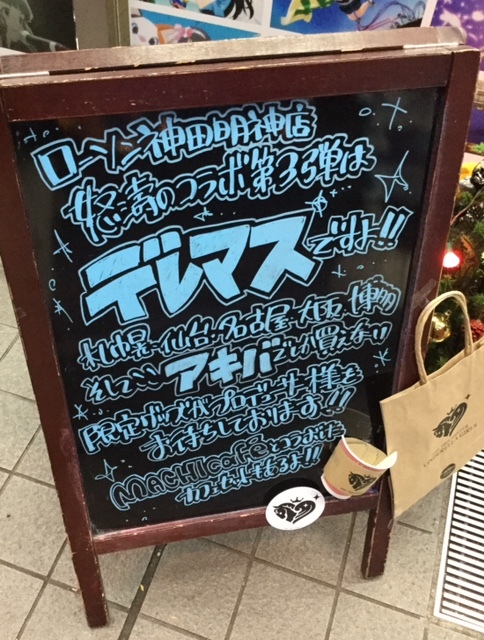 ローソン神田明神店
怒濤のコラボ第33弾は
デレマスですよ!!
札幌・仙台・名古屋・大阪・博多
そしてここアキバでしか買えない
限定グッズがプロデューサー様を
お待ちしております!!
MACHI caféとつつぉけた
カフェセットもあるよ!!
CINDERELLA GIRLS